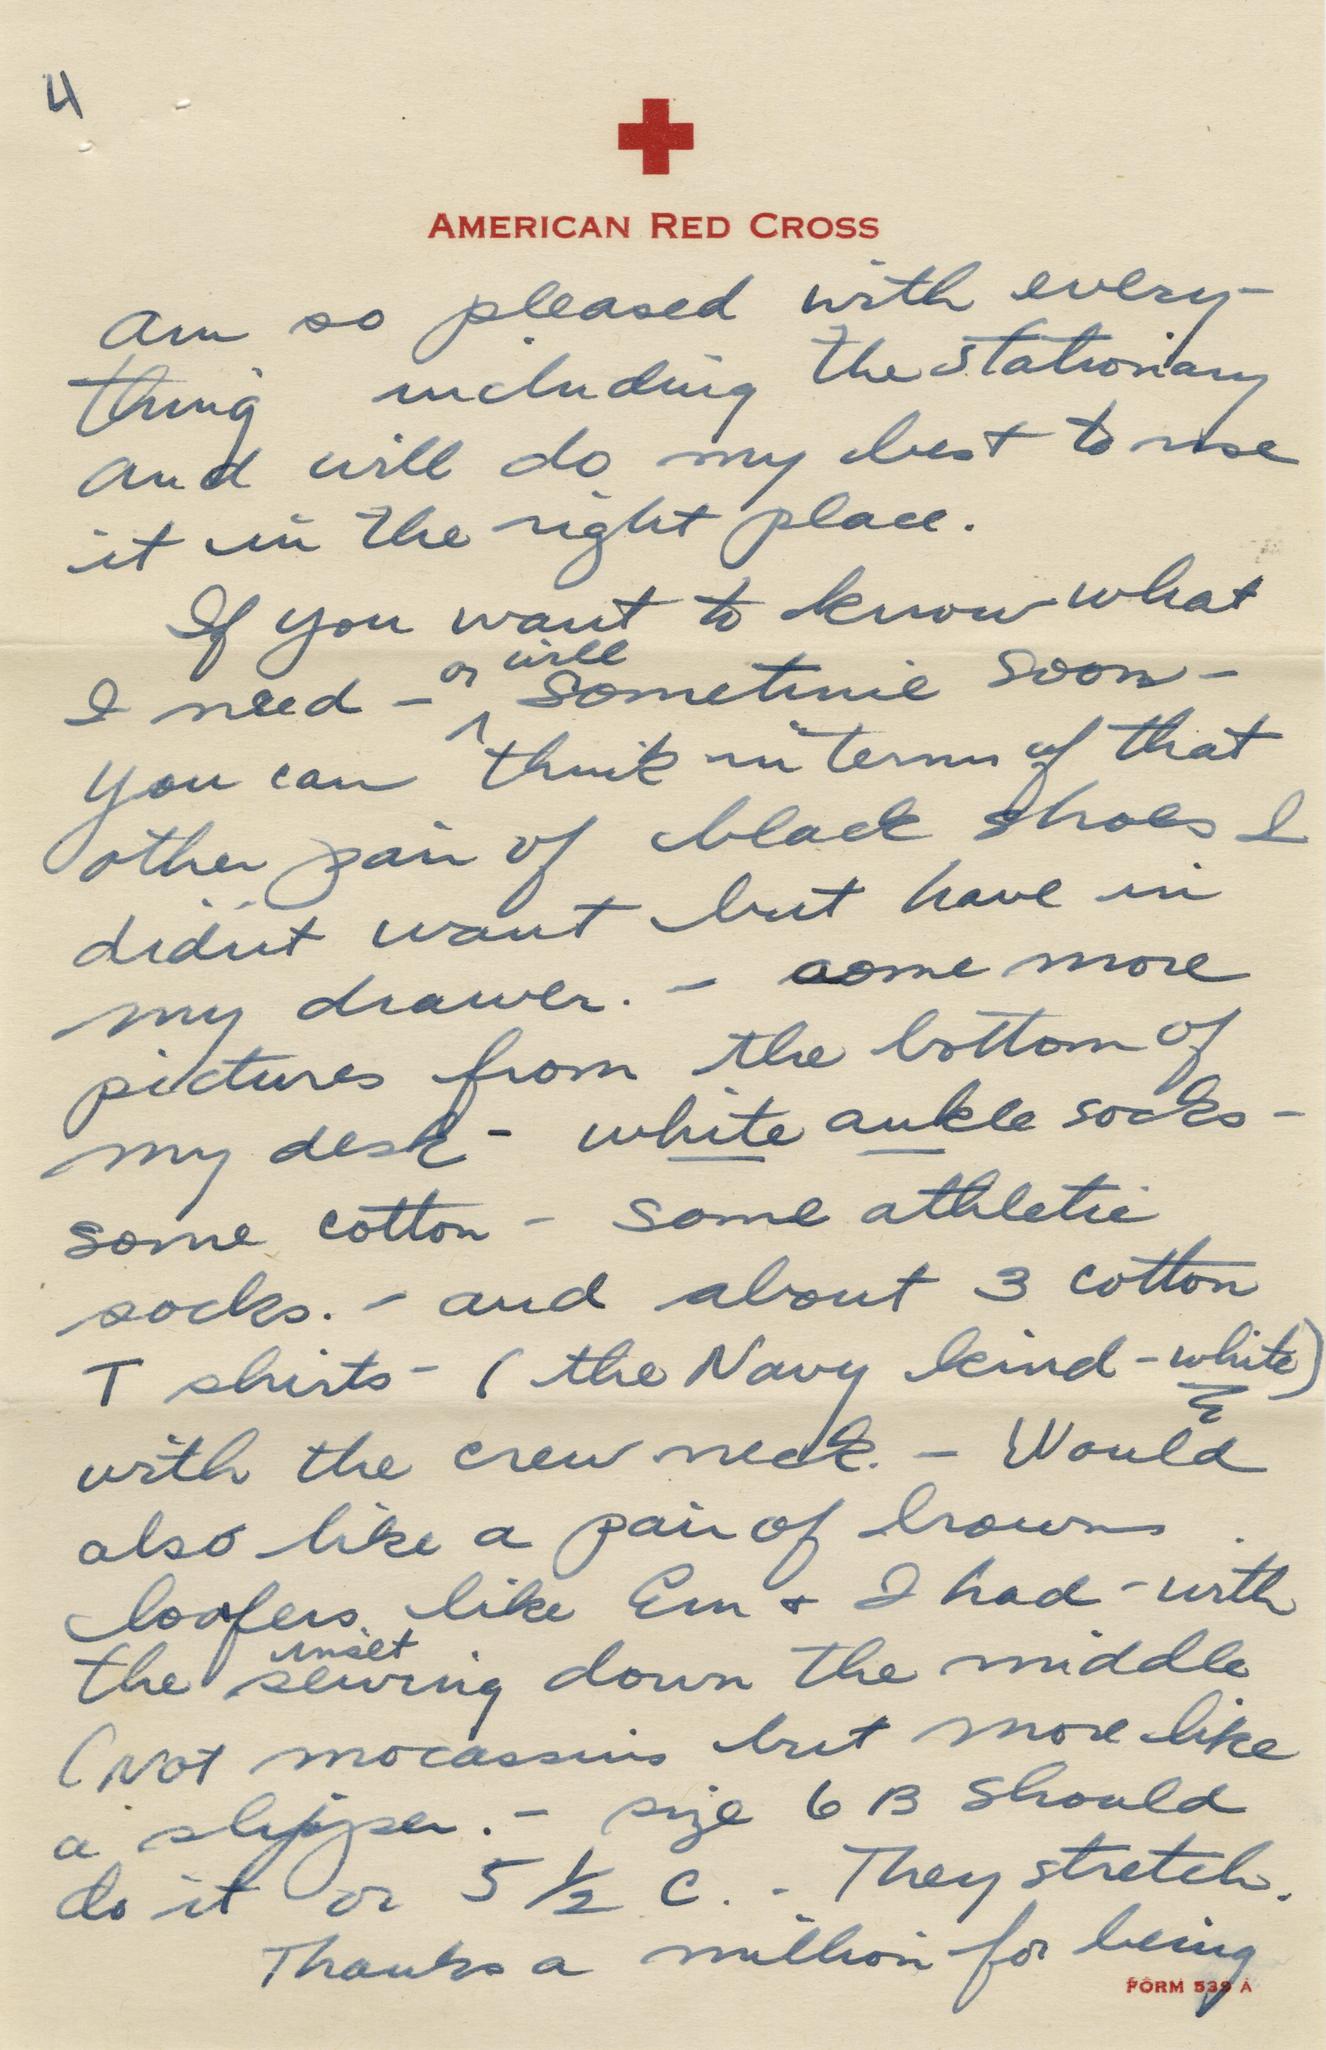 4
AMERICAN RED CROSS
am so pleased with every-
thing including the stationary
and will do my best to use
it in the right place.
If you want to know what
I need - or will sometime soon -
you can think in terms of that
other pair of black shoes I
didn't want but have in
my drawer. - some more
pictures from the bottom of
my desk - white ankle socks -
some cotton - some athletic
socks. - and about 3 cotton
T shirts - (the Navy kind - white)
with the crew neck. - Would
also like a pair of brown
loafers like Em + I had - with
the inset sewing down the middle
(Not mocassins but more like
a slipper. - size 6 B should
do it or 5 1/2 C. - They stretch.
Thanks a million for being
FORM 539 A